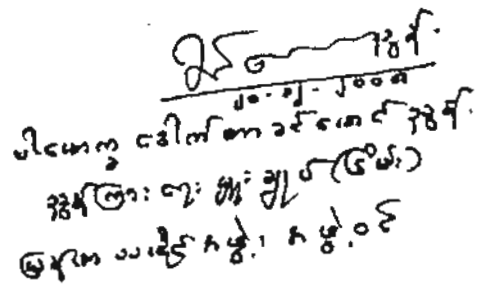 ညွန့်
ပါမောက္ခ ဒေါက်တာ ခင်မောင်ညွန့်
ညွှန်ကြားရေးမှူးချုပ် (ငြိမ်း)
မြန်မာ သမိုင်းအဖွဲ့၊ အဖွဲ့ဝင်